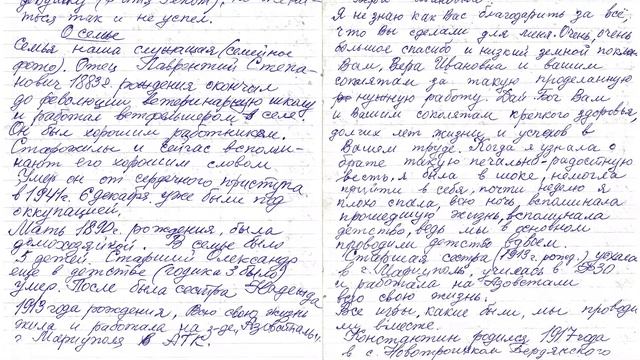 ться так и не успел.
О семье
Семья наша служащая (семейное
фото). Отец Лаврентий Степа-
нович 1883г. рождения скончил
до революции ветеринарную школу
и работал ветфельдшером в селе.
Он был хорошим работником.
Старожилы и сейчас вспоми-
нают его хорошим словом
Умер он от сердечного приступа
в 1941г. 6 декабря, уже были под
оккупацией.
Мать 1890г. рождения, была
домохозяйкой. В семье было
5 детей. Старший Александр
ещё в детстве (годика 3 было)
умер. После была сестра Надежда
1913 года рождения, всю свою жизнь
жила и работала на з-де „Азовсталь"
г Мариуполя в АТК.
Я не знаю как Вас благодарить за всё,
что Вы сделали для меня. Очень, очень
большое спасибо и низкий земной покло
Вам, Вера Ивановна и вашим
соколятам за такую проделанную
нужную работу. Дай Бог Вам
и Вашим соколятам крепкого здоровья,
долгих лет жизни и успехов в
Вашем труде. Когда я узнала о
брате такую печально-радостную
весть, я была в шоке, не могла
прийти в себя, почти неделю я
плохо спала, всю ночь, вспоминала
прошедшую жизнь, вспоминала
детство, ведь мы в основном
проводили детство вдвоём.
Старшая сестра (1913 г. рожд.) уехала
в г. Мариуполь, училась в ФЗО
и работала на Азовстали
всю свою жизнь.
Все игры, какие были, мы проводи
ли вместе.
Константин родился 1917 года
в с. Новотроицком Бердянского